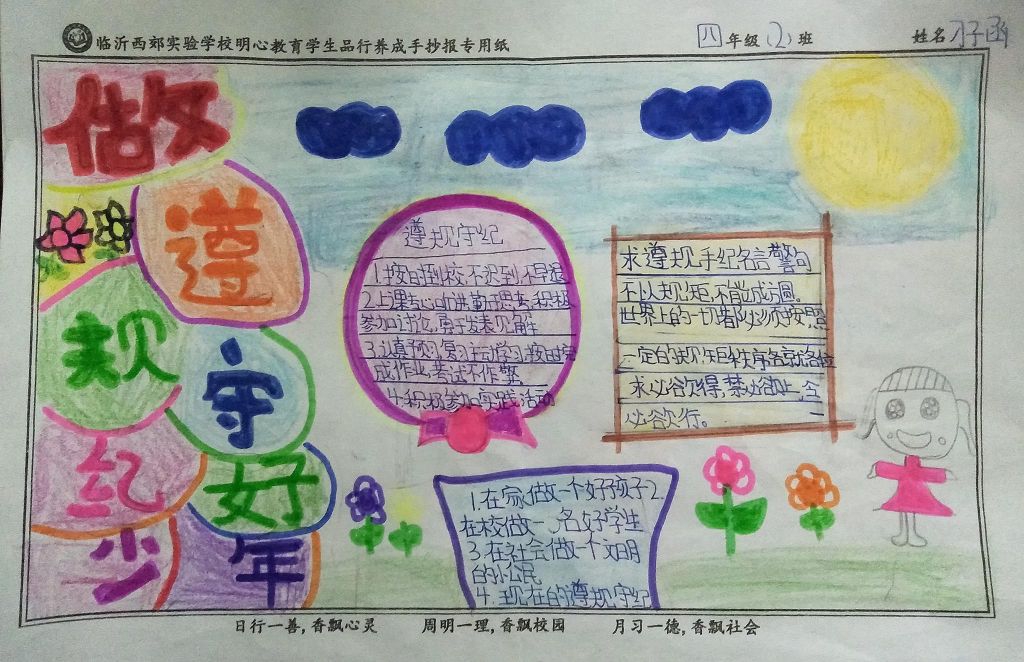 临沂西郊实验学校明心教育学生品行养成手抄报专用纸
四年级(2)班
姓名 子函
做
遵
规
守
纪
好
少
年
遵规守纪
1.按时到校,不迟到,不早退
2.上课专心听讲,勤于思考,积极
参加讨论,勇于发表见解
3.认真预习,复习,主动学习,按时完
成作业,考试不作弊
4.积极参加实践活动
求遵规手纪名言警句
不以规矩,不能成方圆。
世界上的一切都必须按照
一定的规矩秩序各就各位
求必欲得,禁必欲止,令
必欲行。
1.在家做一个好孩子2.
在校做一名好学生
3.在社会做一个文明
的小公民
4.现在的遵规守纪
日行一善,香飘心灵 周明一理,香飘校园 月习一德,香飘社会